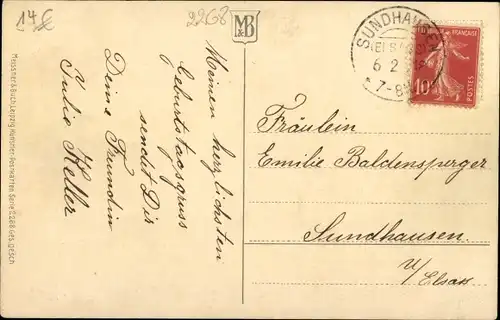 14 €
2268
M&B
Meissner & Buch, Leipzig Künstler-Postkarten Serie 2268 Ges. gesch.
Meinen herzlichsten
Geburtstagsgruss
sendet Dir
Deine Freundin
Julie Keller
SUNDHAUSEN
6 2
* 7-8
FRANÇAISE
10
POSTES
Fräulein
Emilie Baldensperger
Sundhausen
u/Elsass